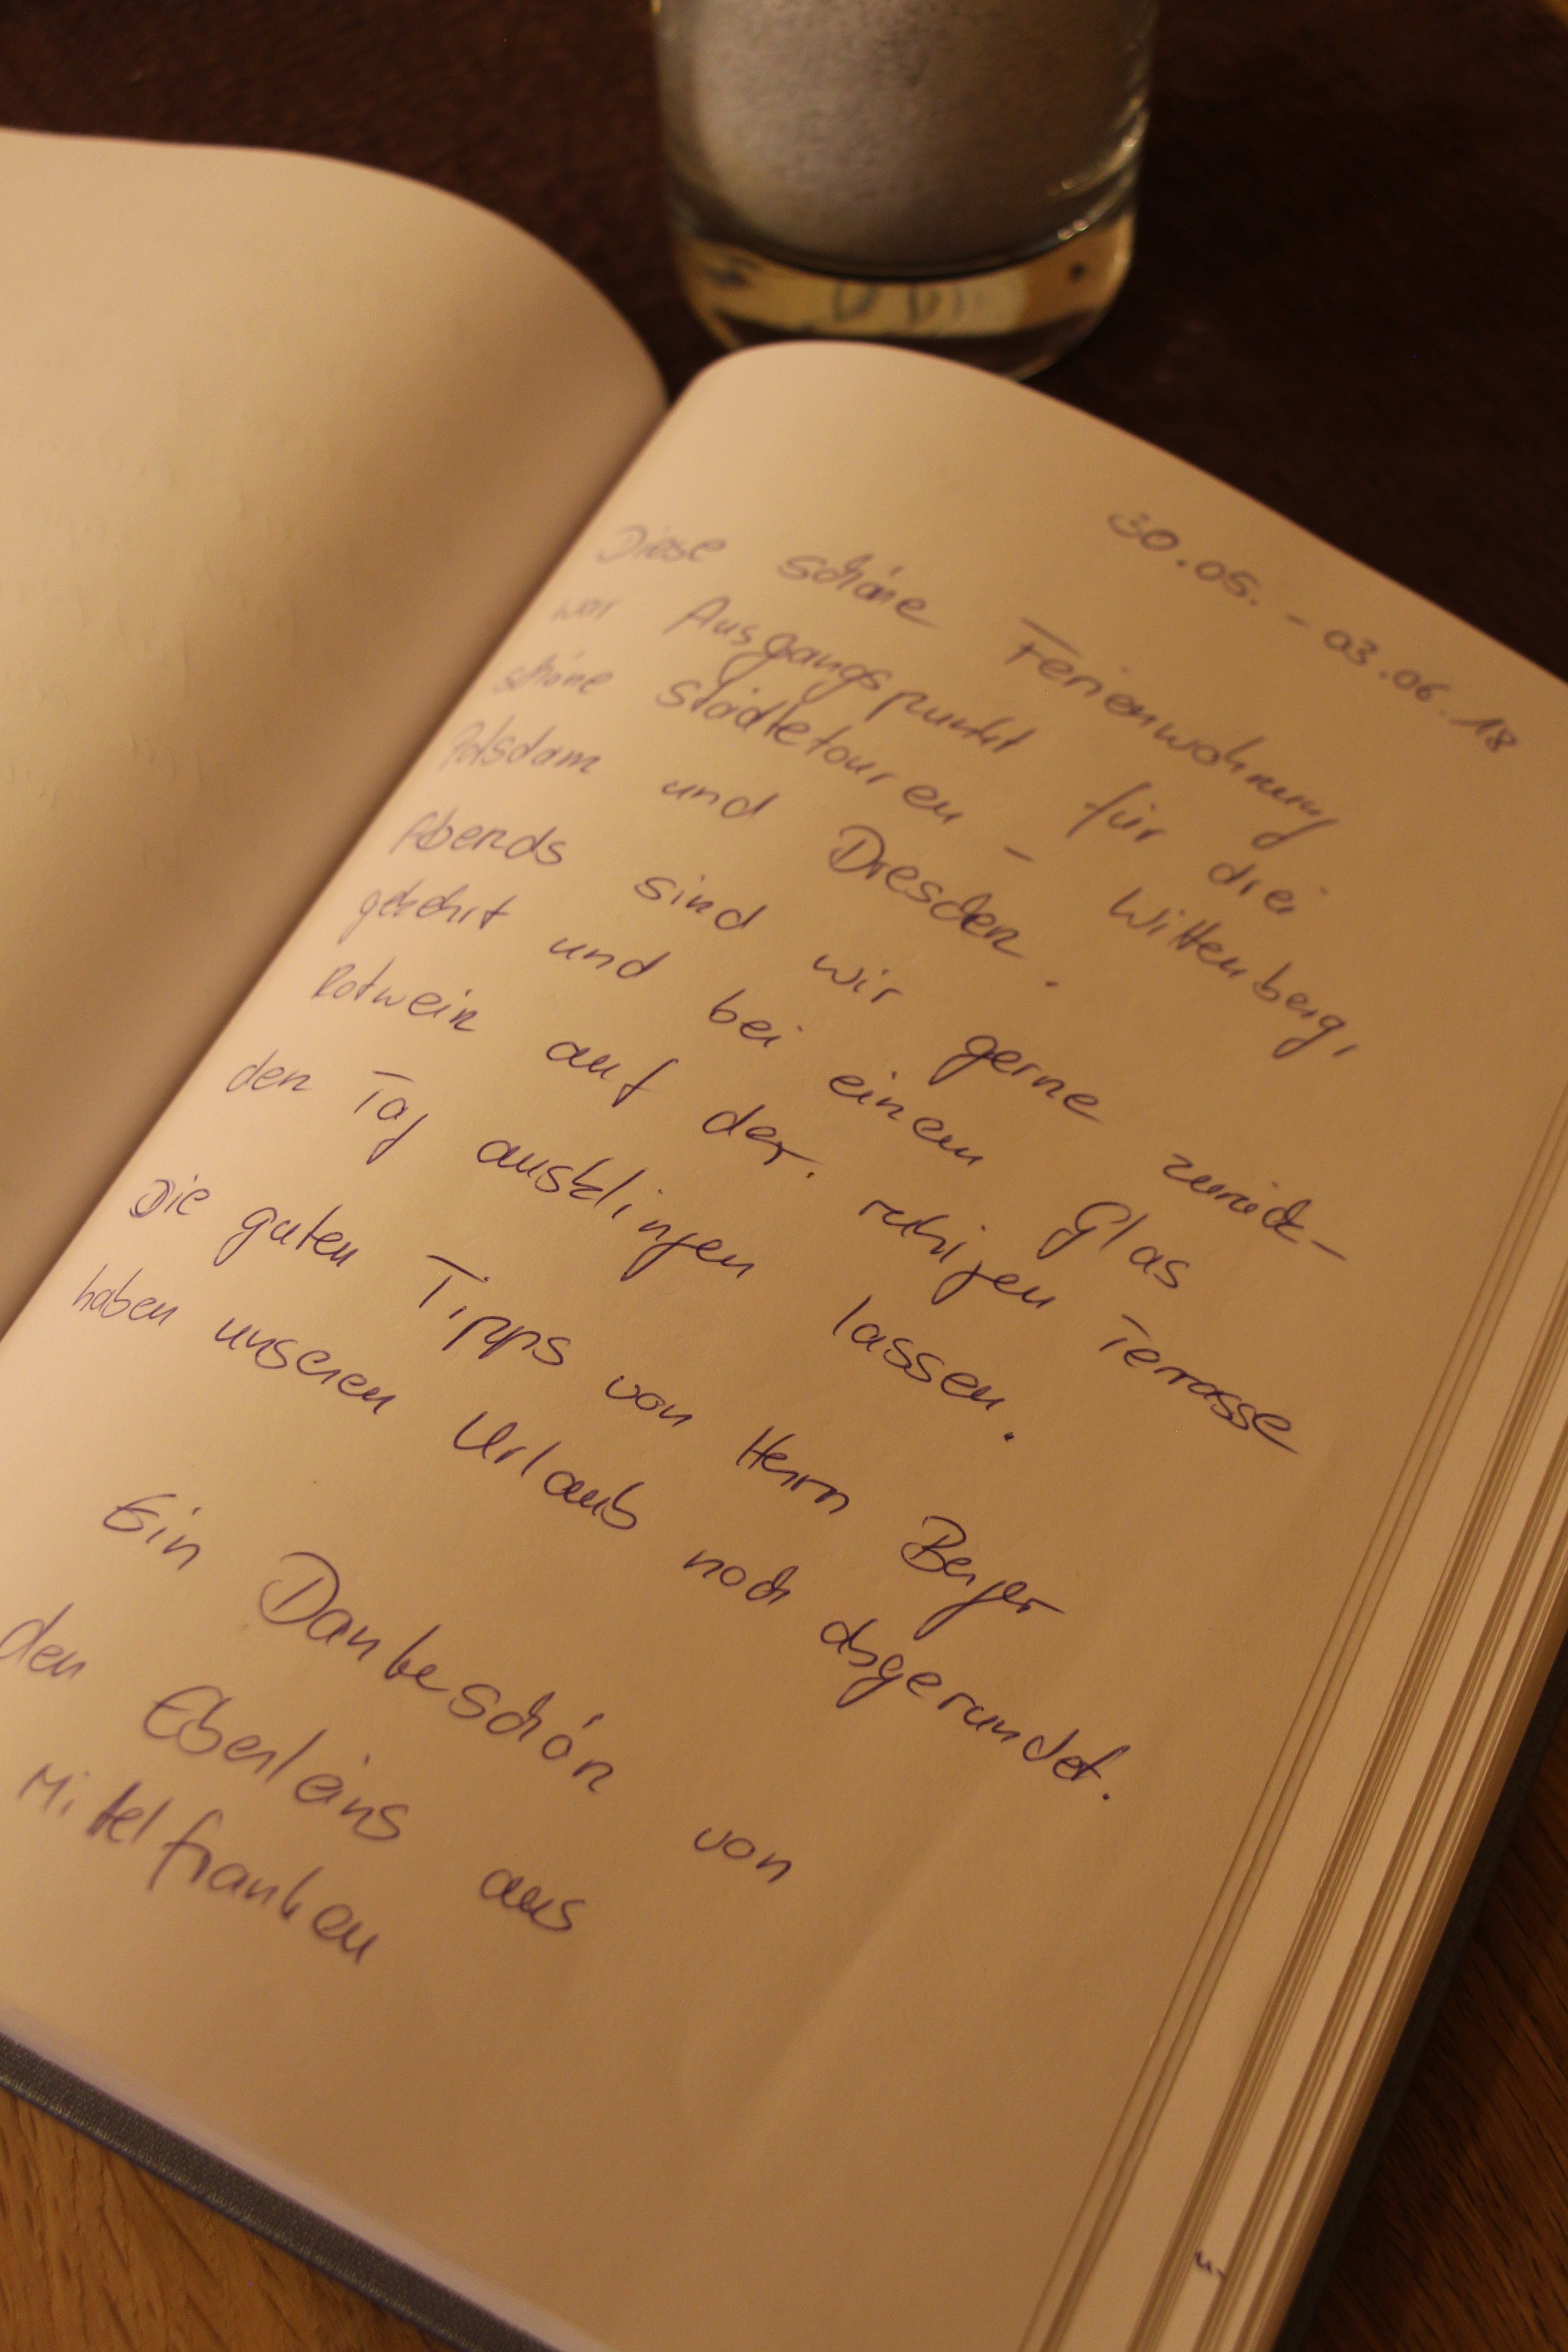 30.05. - 03.06.18
Diese schöne Ferienwohnung
war Ausgangspunkt für drei
schöne Städtetouren - Wittenberg,
Potsdam und Dresden.
Abends sind wir gerne zurück-
gekehrt und bei einem Glas
Rotwein auf der ruhigen Terrasse
den Tag ausklingen lassen.
Die guten Tipps von Herrn Berger
haben unseren Urlaub noch abgerundet.
Ein Dankeschön von
den Eberleins aus
Mittelfranken